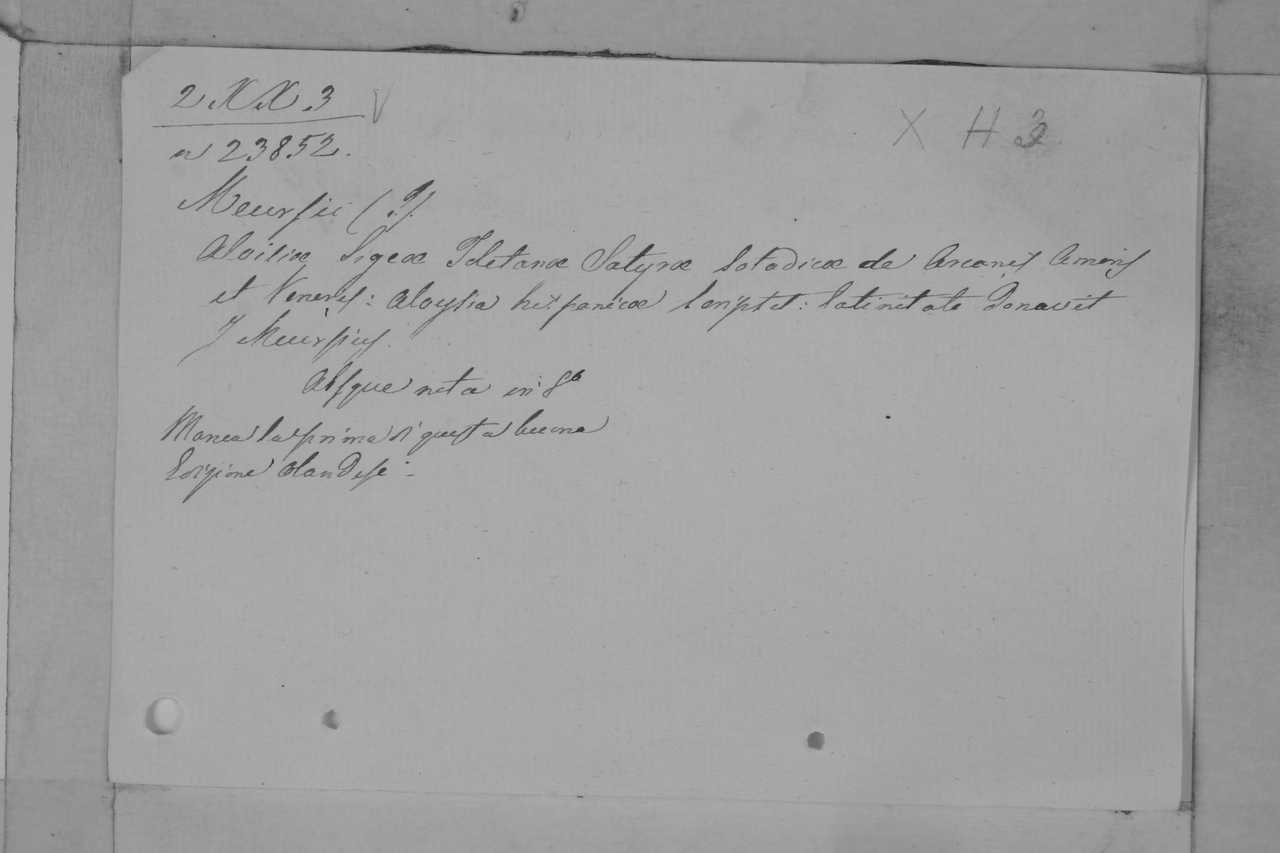 2. X. X. 3 V
X H 3
a 23852.
Meursii (J.)
Aloisiæ Sigeæ Toletanæ Satyræ Sotadicæ de Arcanis Amoris
et Veneris: Aloysia hispanicæ scripsit: latinitate Donavit
J Meursius.
Absque nota in 8º
Manca la prima di questa buona
Edizione Olandese: